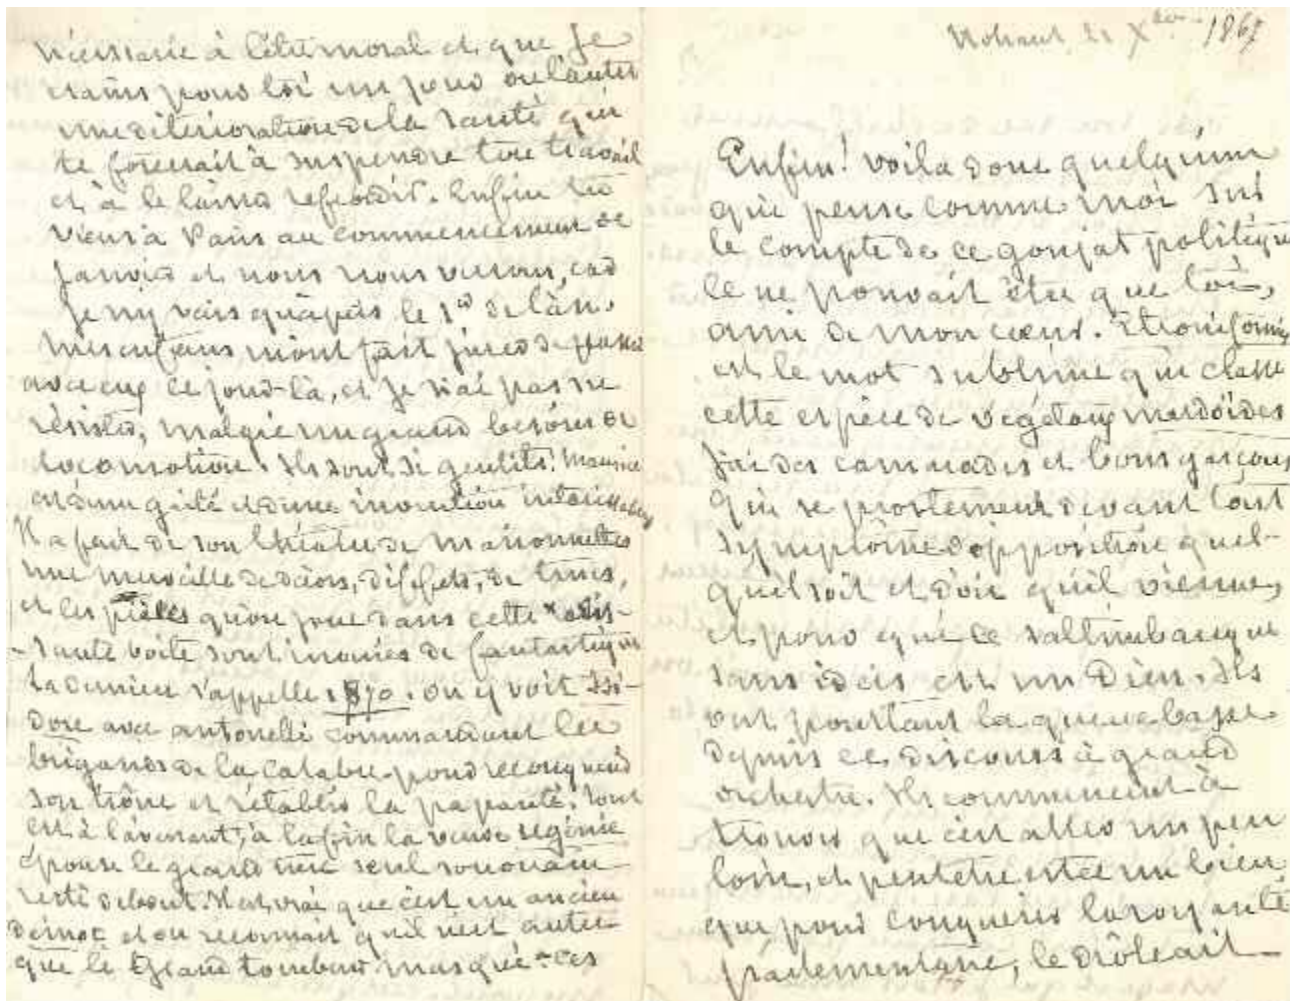 nécessaire à l'être moral et que je
crains pour toi un jour ou l'autre
une détérioration de la santé qui
te forcerait à suspendre ton travail
et à le laisser refroidir. Enfin tu
viens à Paris au commencement de
Janvier et nous nous verrons, car
Je n'y vais qu'après le 1er de l'an.
Mes enfans m'ont fait jurer de passer
avec eux ce jour-là, et je n'ai pas su
résister, malgré un grand besoin de
locomotion. Ils sont si gentils! Maurice
est d'une gaité et d'une invention intarissables
Il a fait de son théâtre de marionnettes
une merveille de décors, d'effets, de trucs,
et les pièces qu'on joue dans cette ravis-
-sante boite sont inouies de fantastique
La dernière s'appelle 1870. On y voit Isi-
dore avec antonelli commandant les
brigands de la calabre pour reconquérir
son trône et rétablir la papauté. Tout
est à l'avenant; à la fin la veuve ugénie
épouse le grand turc seul souverain
resté debout. Il est vrai que c'est un ancien
démoc et on reconnait qu'il n'est autre
que le Grand tombeur masqué. ces
Nohant, 21 Xbre 1867
Enfin! voilà donc quelqu'un
qui pense comme moi sur
le compte de ce goujat politique
Ce ne pouvait être que toi,
ami de mon cœur. Etroniformes
est le mot sublime qui classe
cette espèce de végétaux merdoïdes
J'ai des camarades et bons garçons
qui se prosternent devant tout
symptôme d'opposition quel-
qu'il soit et d'où qu'il vienne,
et pour qui ce saltimbanque
sans idées est un Dieu. Ils
ont pourtant la queue basse
depuis ce discours à grand
orchestre. Ils commencent à
trouver que c'est aller un peu
loin, et peutêtre est-ce un bien
que pour conquérir la royauté
parlementaire, le drôle ait